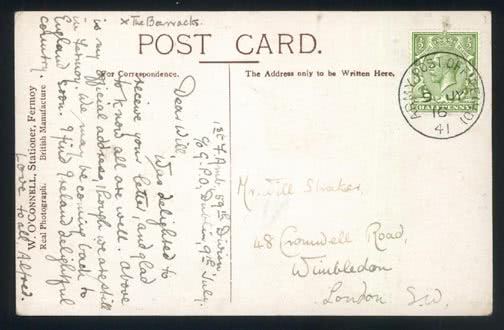 x The Barracks.
POST CARD.
For Correspondence.
The Address only to be Written Here.
1st F. Amb. 59th Division
c/o G.P.O., Dublin 9th July.
Dear Will
Was delighted to
receive your letter, and glad
to know all are well. Above
is my official address, though we are still
in Fermoy. We may be coming back to
England soon. I find Ireland delightful
country.
Love to all Alfred.
Mr. Will Straker,
48 Cromwell Road,
Wimbledon
London S.W.
ARMY POST OFFICE
9 JY
16
41
HALFPENNY
W. O'CONNELL, Stationer, Fermoy
Real Photograph. British Manufacture